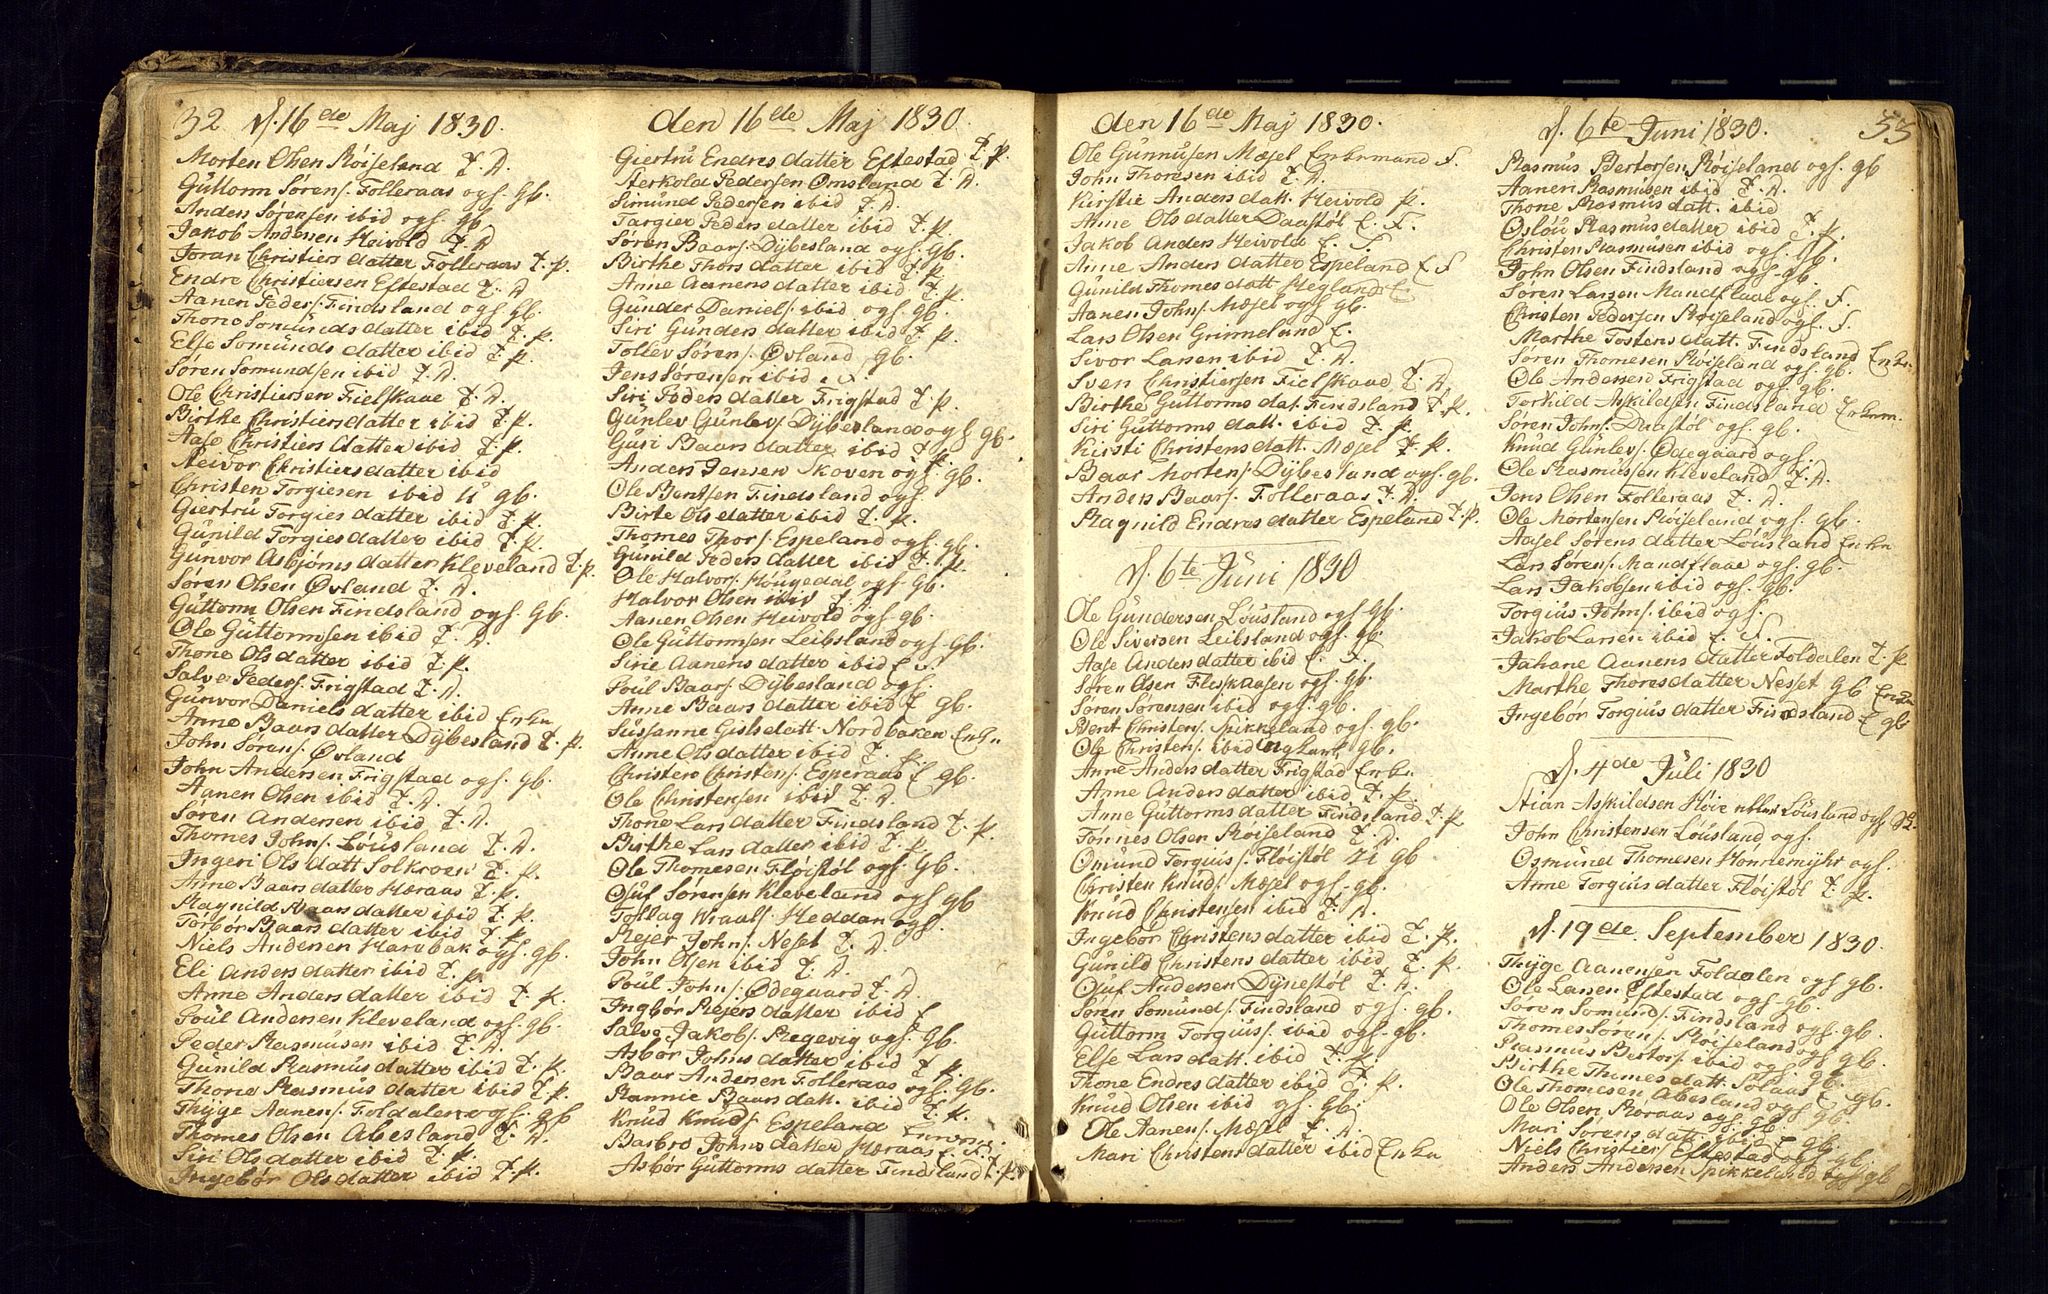 32 d. 16de Maj 1830.
Morten Olsen Røiseland T. D.
Guttorm Sørens. Folleraas ogs. gb.
Anders Sørensen ibid ogs. gb.
Jakob Andersen Heivold T. D.
Joran Christiers datter Folleraas T. p.
Endre Christiersen Eftestad T. D.
Aanen Peders. Findsland ogs gb.
Thone Somunds datter ibid T. p.
Else Somunds datter ibid T. p.
Søren Somundsen ibid T. D.
Ole Christiersen Fielskaae T. D.
Birthe Christiersdatter ibid T. p.
Aase Christiers datter ibid T. p.
Reivor Christiersdatter ibid
Christen Torgiesen ibid gb.
Giertru Torgies datter ibid T. p.
Gunild Torgiesdatter ibid T. p.
Gunvor Asbjørns datter Kleveland T. p.
Søren Olsen Øvland T. D.
Guttorm Olsen Findsland ogs. gb.
Ole Guttormsen ibid T. D.
Thone Olsdatter ibid T. p.
Salve Peders. Frigstad T. D.
Gunvor Daniels datter ibid Enkn
Anne Baars datter Dybesland T. p.
John Sørens. Øvland
John Andersen Frigstad ogs. gb.
Aanen Olsen ibid T. D.
Søren Andersen ibid T. D.
Thomes Johns. Løusland T. D.
Ingeri Ols datt Solkroen T. p.
Anne Baars datter Heraas T. p.
Ragnild Baars datter ibid T. p.
Torbor Baars datter ibid T. p.
Niels Andersen Harebak ogs. gb.
Eli Anders datter ibid T. p.
Anne Anders datter ibid T. p.
Poul Andersen Kleveland ogs. gb.
Peder Rasmusen ibid T. D.
Gunild Rasmus datter ibid T. p.
Thone Rasmus datter ibid T. p.
Thyge Aanens. Foldalen ogs. gb
Thomes Olsen Abesland T. D.
Siri Ols datter ibid T. p.
Ingebør Olsdatter ibid T. p.
den 16de Maj 1830.
Giertru Endres datter Eftestad T. p.
Terkold Pedersen Omsland T. D.
Simund Pedersen ibid T. D.
Targier Peders datter ibid T. p.
Søren Baars. Dybesland ogs. gb.
Birthe Thors datter ibid T. p.
Anne Aanens datter ibid T. p.
Gunder Daniels. ibid ogs. gb.
Siri Gunders datter ibid T. p.
Tollev Sørens. Øvland gb.
Jens Sørensen ibid
Siri Peders datter Frigstad T. p.
Gunlev Gunlevs. Dybesland ogs gb.
Guri Baars datter ibid T. p.
Anders Jensen Skoven ogs. gb.
Ole Bentsen Findsland ogs.
Birte Ols datter ibid T. p.
Thomes Thors. Espeland ogs. gb.
Gunild Peders datter ibid T. p.
Ole Halvors. Hougedal ogs. gb.
Halvor Olsen ibid T. D.
Aanen Olsen Heivold ogs. gb.
Ole Guttormsen Leibsland ogs. gb.
Sirie Aanens datter ibid E F
Poul Baars. Dybesland ogs.
Anne Baars datter ibid E gb.
Susanne Gislsdatt. Nordbaken Enkn
Anne Ols datter ibid T. p.
Christen Christens. Esperaas E gb.
Ole Christensen ibid T. D.
Thone Lars datter Findsland T. p.
Birthe Lars datter ibid T. p.
Ole Thomesen Fløistøl ogs. gb.
Ojuf Sørensen Kleveland ogs gb
Tollag Heddan ogs.
Rejer Johns. Neset T. D.
John Olsen ibid T. D.
Poul Johns. Ødegaard T. D.
Ingbør Rejers datter ibid E
Salve Jakobs. Regevig ogs. gb.
Asbør Johns datter ibid T. p
Baar Andersen Folleraas ogs. gb.
Rannie Baars datt. ibid T. p.
Knud Knuds. Espeland
Barbro Johns datter Heraas E. F.
Asbør Guttorms datter Findsland T. p.
den 16de Maj 1830.
Ole Gunnusen Mæsel Enkemand F.
John Thoresen ibid T. D.
Kirstie Anders datt. Heivold p.
Anne Ols datter Daastøl E. F.
Jakob Anders Heivold E. F.
Anne Anders datter Espeland E F
Gunild Thomes datt. Hegland E
Aanen Johns. Mæsel ogs gb.
Lars Olsen Grimeland E.
Sivor Larsen ibid T. D.
Sven Christiersen Fielskaae T. D.
Birthe Guttorms dat. Findsland T. p.
Siri Guttorms datt. ibid T. p.
Kirsti Christens datt. Mæsel T. p.
Baar Mortens. Dybesland ogs. gb.
Anders Baars. Folleraas T. D.
Ragnild Endres datter Espeland T. p.
d. 6te Juni 1830
Ole Gundersen Løusland ogs. gb.
Ole Siversen Leibsland ogs. gb.
Aase Anders datter ibid E. F.
Søren Olsen Fleskaasen ogs. gb.
Søren Sørensen ibid ogs. gb.
Bent Christens. Spikkeland ogs. gb.
Ole Christens. ibid gb.
Anne Anders datter Frigstad Enkn
Anne Anders datter ibid T. p.
Anne Guttorms datter Findsland T. p
Tønnes Olsen Røiseland T. D.
Omund Torgius. Fløistøl gb
Christen Knuds. Mæsel ogs. gb.
Knud Christensen ibid T. D.
Ingebør Christens datter ibid T. p.
Gunild Christens datter ibid T. p.
Ojuf Andersen Dynestøl T. D.
Søren Somunds. Findsland ogs. gb.
Guttorm Torgius. ibid ogs. gb.
Else Lars datt. ibid T. p.
Thone Endres datter ibid T. p.
Knud Olsen ibid ogs. gb.
Ole Aanens. Mæsel T. D.
Mari Christens datter ibid Enkn
d. 6te Juni 1830. 33
Rasmus Bertorsen Røiseland ogs. gb
Aanen Rasmusen ibid T. D.
Thone Rasmus datt. ibid
Osløu Rasmus datter ibid T. p.
Christen Rasmusen ibid ogs. gb.
John Olsen Findsland ogs. gb.
Søren Larsen Mandflaae ogs. F.
Christen Pedersen Røiseland ogs. F.
Marthe Tostens datt. Findsland Enkn
Søren Thomesen Røiseland ogs. gb.
Ole Andersen Frigstad ogs. gb.
Torkild Askildsen Findsland Enkem.
Søren Johns. Daastøl ogs. gb.
Knud Gunlevs. Ødegaard ogs.
Ole Rasmussen Kleveland T. D.
Jens Olsen Folleraas T. D.
Ole Mortensen Røiseland ogs. gb.
Aasel Sørens datter Løusland Enkn
Lars Sørens. Mandflaae ogs. gb.
Lars Jakobsen ibid ogs. gb.
Torgius Johns. ibid ogs.
Jakob Larsen ibid E. F.
Jahane Aanens datter Foldalen T. p
Marthe Thoresdatter Nesset gb Enkn
Ingebør Torgius datter Findsland E gb
d. 4de Juli 1830
Stian Askildsen Høie Løusland ogs gb.
John Christensen Løusland ogs.
Osmund Thomesen Honnemyhr ogs.
Anne Torgius datter Fløistøl T. p.
d. 19de September 1830.
Thyge Aanensen Foldalen ogs gb.
Ole Larsen Eftestad ogs. gb.
Søren Somunds. Findsland ogs. gb.
Thomes Sørens. Røiseland ogs gb.
Rasmus Bertors. ibid ogs. gb.
Birthe Thomes datt. Solaas E gb.
Ole Thomesen Abesland ogs gb.
Ole Olsen Roraas ogs. gb.
Mari Sørens datt. ibid E gb.
Niels Christiers. Eftestad ogs gb.
Anders Andersen Spikkeland ogs gb